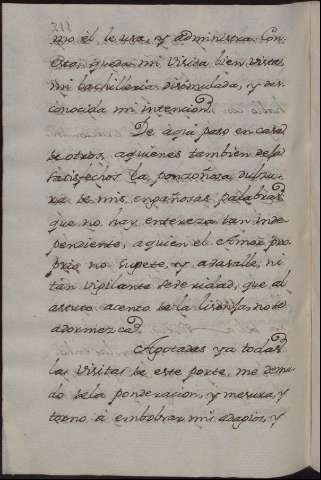 mo él le usa, y administra. Con
esto, queda mi visita bien vista,
mi bachilleria disimulada, y des-
conocida mi intencion.
De aqui paso en casa
de otros, a quienes tambien dexa
satisfechos la ponzoñosa dulzu-
ra de mis engañosas palabras
que no hay entereza tan inde-
pendiente, a quien el Amor pro-
prio no sugete, y avasalle, ni
tan vigilante severidad, que al
astuto acento de la lisonja, no se
adormezca.
Agotadas ya todas
las visitas de este porte, me demu-
do de la ponderacion, y mesura, y
torno a embobrar mi adagios, y